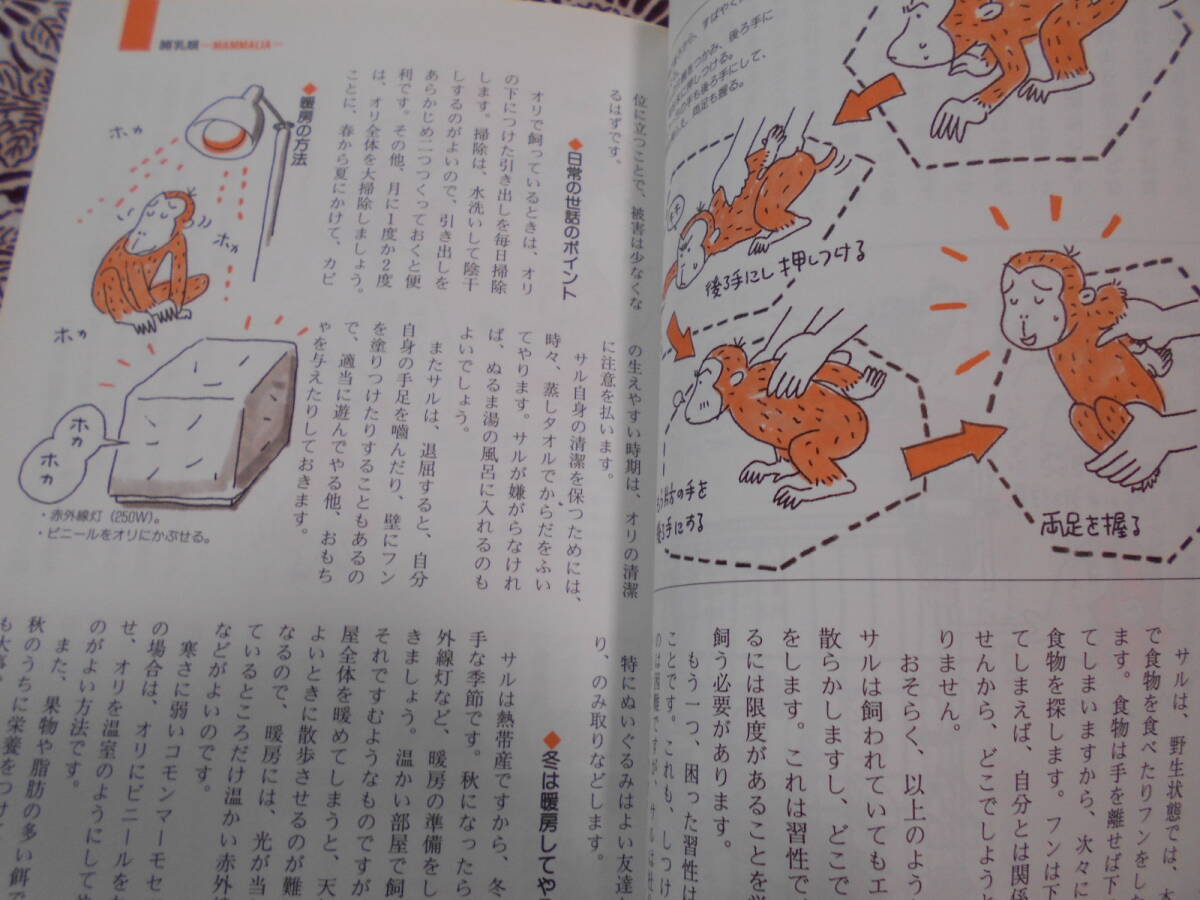 すばやく
腕をつかみ、後ろ手に
に押しつける。
の手も後ろ手にして、
両足も握る。
後ろ手にし押しつける
右の手を
後ろ手にする
両足を握る
サルは、野生状態では、木
で食物を食べたりフンをした
ます。食物は手を離せば下
てしまいますから、次々に
食物を探します。フンは下
てしまえば、自分とは関係
せんから、どこでしようと
りません。
おそらく、以上のよう
サルは飼われていてもエ
散らかしますし、どこで
をします。これは習性で
るには限度があることを覚
飼う必要があります。
もう一つ、困った習性は
ことです。これも、しつけ
哺乳類 —MAMMALIA—
位に立つことで、被害は少なくな
るはずです。
◆日常の世話のポイント
オリで飼っているときは、オリ
の下につけた引き出しを毎日掃除
します。掃除は、水洗いして陰干
しするのがよいので、引き出しを
あらかじめ二つつくっておくと便
利です。その他、月に1度か2度
は、オリ全体を大掃除しましょう。
ことに、春から夏にかけて、カビ
の生えやすい時期は、オリの清潔
に注意を払います。
サル自身の清潔を保つためには、
時々、蒸しタオルでからだをふい
てやります。サルが嫌がらなけれ
ば、ぬるま湯の風呂に入れるのも
よいでしょう。
またサルは、退屈すると、自分
自身の手足を噛んだり、壁にフン
を塗りつけたりすることもあるの
で、適当に遊んでやる他、おもち
ゃを与えたりしておきます。
特にぬいぐるみはよい友達
り、のみ取りなどします。
◆冬は暖房してや
サルは熱帯産ですから、冬
手な季節です。秋になったら
外線灯など、暖房の準備をし
きましょう。温かい部屋で飼
それですむようなものですが
屋全体を暖めてしまうと、天
よいときに散歩させるのが難
なるので、暖房には、光が当
ているところだけ温かい赤外
などがよいのです。
寒さに弱いコモンマーモセ
の場合は、オリにビニールを
せ、オリを温室のようにして
のがよい方法です。
また、果物や脂肪の多い餌で
秋のうちに栄養をつけて
も大事
◆暖房の方法
ホカ
ホカ
ホカ
ホカ
ホカ
ホカ
・赤外線灯(250W)。
・ビニールをオリにかぶせる。